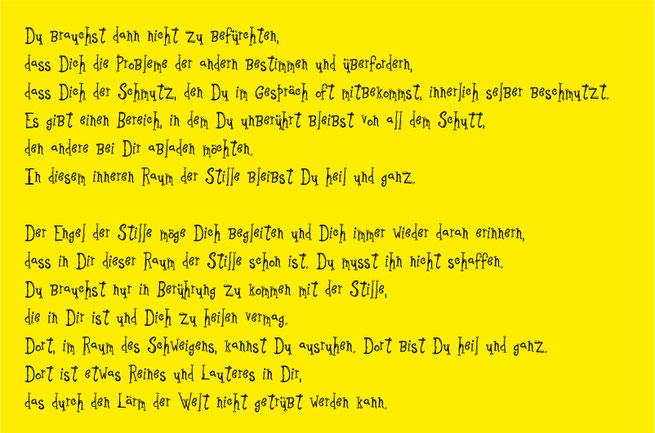 Du brauchst dann nicht zu befürchten,
dass Dich die Probleme der andern bestimmen und überfordern,
dass Dich der Schmutz, den Du im Gespräch oft mitbekommst, innerlich selber beschmutzt.
Es gibt einen Bereich, in dem Du unberührt bleibst von all dem Schutt,
den andere bei Dir abladen möchten.
In diesem inneren Raum der Stille bleibst Du heil und ganz.

Der Engel der Stille möge Dich begleiten und Dich immer wieder daran erinnern,
dass in Dir dieser Raum der Stille schon ist. Du musst ihn nicht schaffen.
Du brauchst nur in Berührung zu kommen mit der Stille,
die in Dir ist und Dich zu heilen vermag.
Dort, im Raum des Schweigens, kannst Du ausruhen. Dort bist Du heil und ganz.
Dort ist etwas Reines und Lauteres in Dir,
das durch den Lärm der Welt nicht getrübt werden kann.